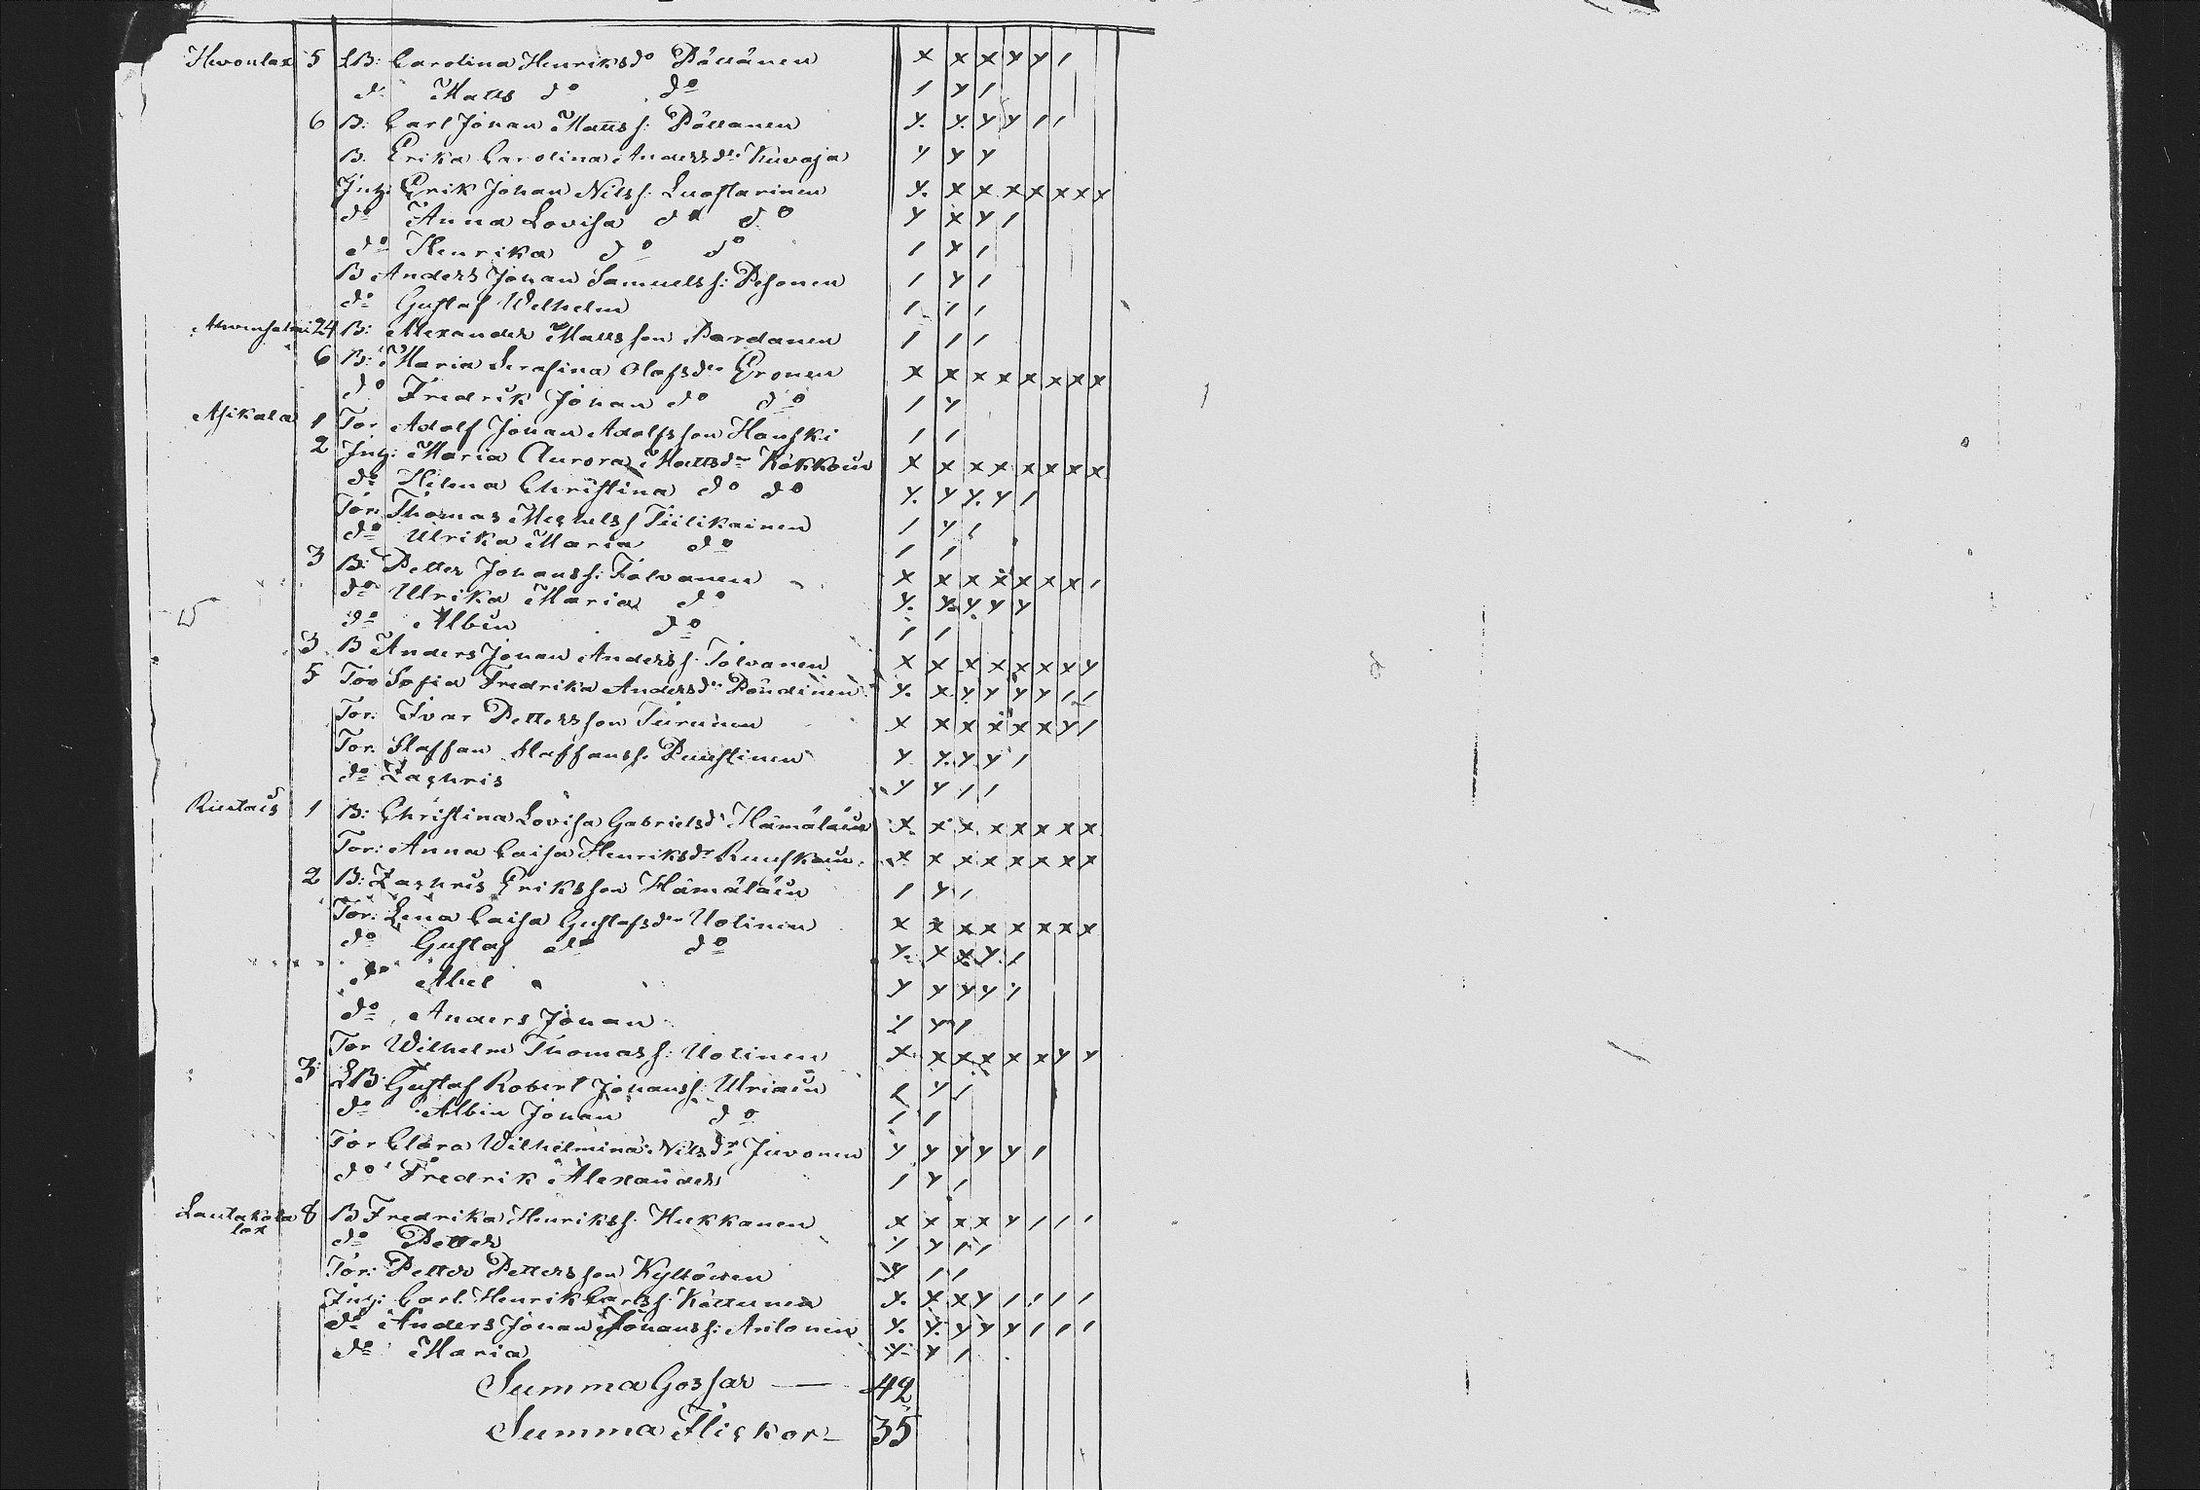 Hwonlax 5 LB: Carolina Henriksdo Pöllänen x x x y y /
do Matts do do / y /
6 B: Carl Johan Mattss: Pöllänen y. y. y y / /
B. Erika Carolina Andersdr Kuvaja y y y
Inh: Erik Johan Nilss: Luostarinen y. x x x x x x x
do Anna Lovisa do do y x y /
do Henrika do do / y /
B Anders Johan Samuelss: Pesonen / y /
do Gustaf Wilhelm / / /
24 B: Alexander Mattsson Pardanen / / /
6 B: Maria Serafina Olafsdr Eronen x x x x x x x x
do Fredrik Johan do do / y
Asikala 1 Tor Adolf Johan Adolfsson Hauski / /
2 Inh: Maria Aurora Mattsdr Kokkoin x x x x x x x x
do Hilma Christina do do y. y y. y /
Tor: Thomas Michelss Tiilikainen / y /
do Ulrika Maria do / /
3 B: Petter Johanss: Tolvanen x x x x x x x /
do Ulrika Maria do y. y. y. y y
do Albin do / /
3 B Anders Johan Anderss: Tolvanen x x x x x x y y
5 Tor Sofia Fredrika Andersdr Poudinen y. x y y y y / /
Tor: Ivar Pettersson Turunen x x x x x x y /
Tor. Staffan Staffanss. Puustinen y y. y y /
do Zachris y y / /
1 B: Christina Lovisa Gabrielsd Hämäläin x. x x x x x x x
Tor: Anna Caisa Henriksdr Ruuskain x x x x x x x x
2 B: Zachris Eriksson Hämäläin / y /
Tor: Lena Caisa Gustafsdr Uotinen x x x x x x x x
do Gustaf do do y. x x y. /
do Abel y y y y /
do Anders Johan y y /
Tor Wilhelm Thomass: Uotinen x x x x x x y y
3 LB Gustaf Robert Johanss: Ulriain / y /
do Albin Johan do / /
Tor Clara Wilhelmina Nilsdr Juvonen y y y y y y /
do Fredrik Alexander / y /
Lautakota 8 B Fredrika Henrikss. Hukkanen x x x x y / / /
lax
do Petter y y / /
Tor: Petter Pettersson Kyllöinen y / /
Inh: Carl Henrik Carlss: Kettunen y. x x y / / / /
do Anders Johan Johanss: Antonen y. y. y y y / / /
do Maria y y /
Summa Gossar — 42
Summa Flickor — 35